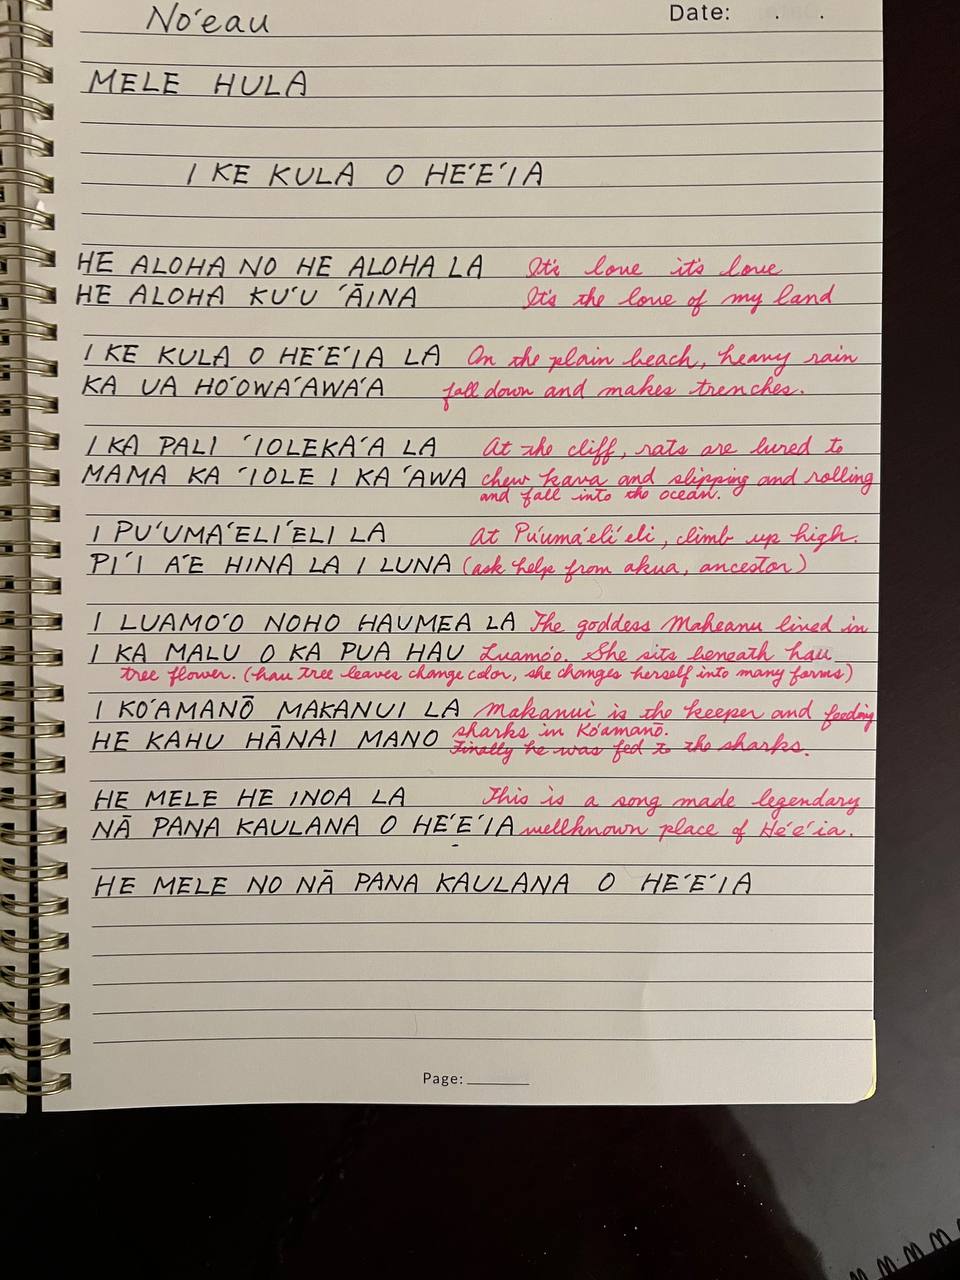 No'eau
Date: . .
MELE HULA
I KE KULA O HE'E'IA
HE ALOHA NO HE ALOHA LA It's love it's love
HE ALOHA KU'U 'ĀINA It's the love of my land
I KE KULA O HE'E'IA LA On the plain beach, heavy rain
KA UA HO'OWA'AWA'A fall down and makes trenches.
I KA PALI 'IOLEKA'A LA At the cliff, rats are lured to
MAMA KA 'IOLE I KA 'AWA chew kava and slipping and rolling
and fall into the ocean.
I PU'UMA'ELI'ELI LA At Pu'uma'eli'eli, climb up high.
PI'I A'E HINA LA I LUNA (ask help from akua, ancestor)
I LUAMO'O NOHO HAUMEA LA The goddess Maheanu lived in
I KA MALU O KA PUA HAU Luamo'o. She sits beneath hau
tree flower. (hau tree leaves change color, she changes herself into many forms)
I KO'AMANŌ MAKANUI LA Makanui is the keeper and feeding
sharks in Ko'amanō.
HE KAHU HĀNAI MANO Finally he was fed to the sharks.
HE MELE HE INOA LA This is a song made legendary
NĀ PANA KAULANA O HE'E'IA wellknown place of He'e'ia.
HE MELE NO NĀ PANA KAULANA O HE'E'IA
Page: